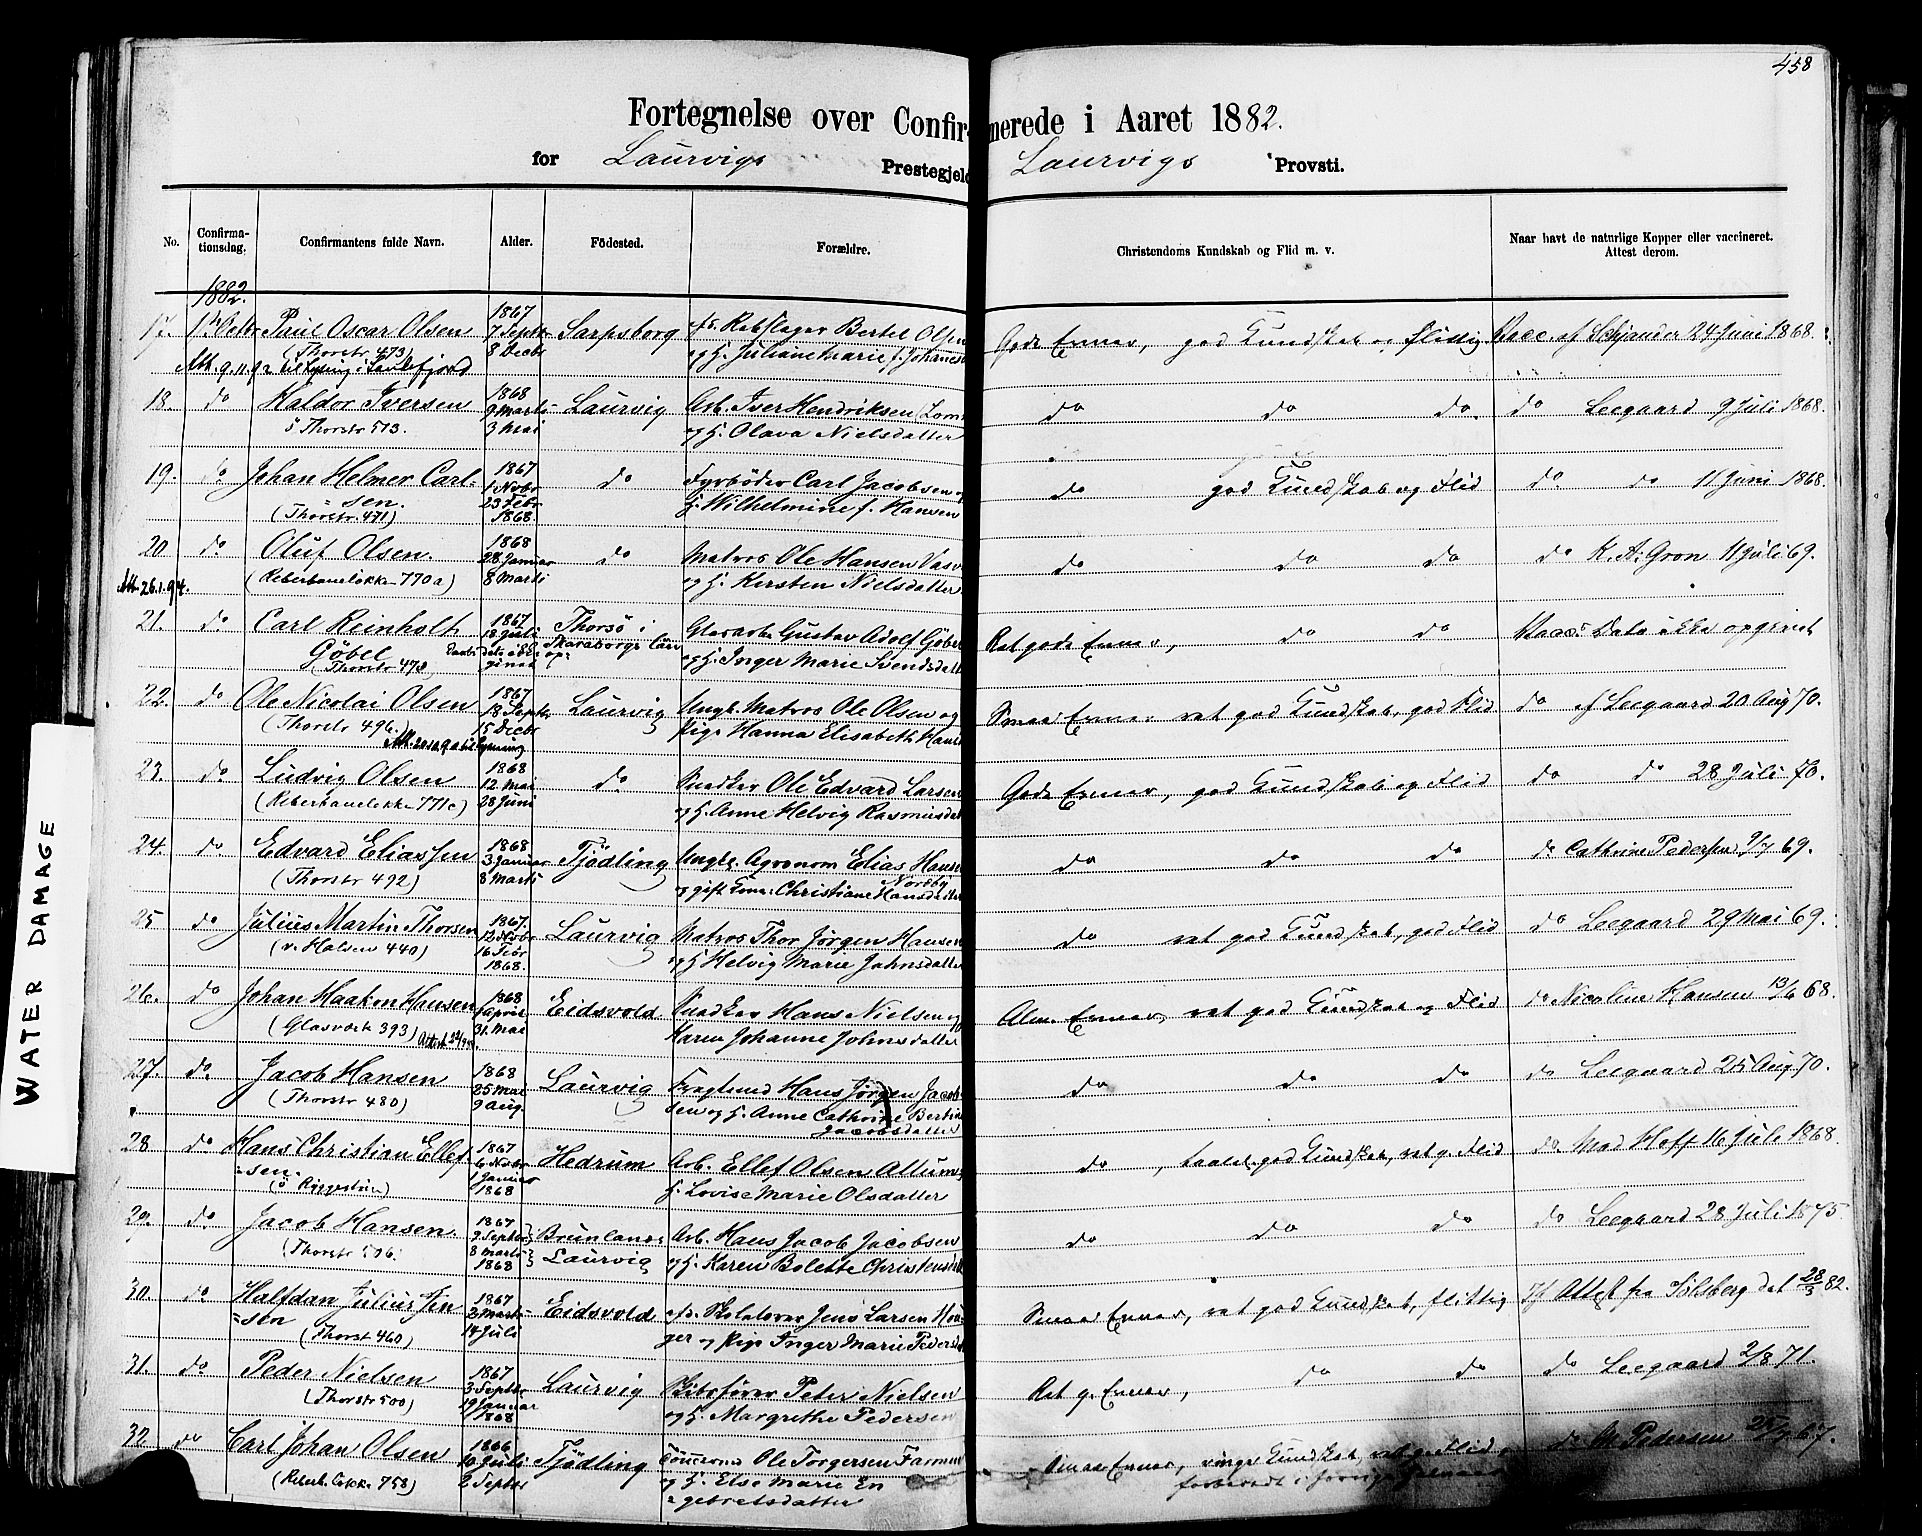 458
Fortegnelse over Confirmerede i Aaret 1882.
for Laurvigs Prestegjeld Laurvigs Provsti.
No. Confirmationsdag. Confirmantens fulde Navn. Alder. Födested. Forældre. Christendoms Kundskab og Flid m. v. Naar havt de naturlige Kopper eller vaccineret. Attest derom.
1882.
17. 1 Octbr Paul Oscar Olsen 1867 7 Septbr 8 Decbr Sarpsborg Rebslager Bertel Olsen
(Thorstr 473) og H. Juliane Marie f. Johannes
Gode Evner, god Kundskab og flittig Vacc. af Schjander 24 Juni 1868.
Att. 9.11.92 til Lysning i Sandefjord
18. do Haldor Iversen 1868 9 Marts 3 Mai Laurvig Arb. Iver Hendriksen
ö Thorstr 513. og H. Olava Nielsdatter
do do do. do Leegaard 9 Juli 1868.
19. do Johan Helmer Carlsen. 1867 1 Novbr 23 Febr 1868. do Fyrböder Carl Jacobsen og
(Thorstr. 471) H. Wilhelmine f. Hansen
do god Kundskab og Flid do do 11 Juni 1868.
20. do Oluf Olsen. 1868 28 Januar 8 Marts do Matros Ole Hansen
(Reberbaneløkke 770a) og H. Kirsten Nielsdatter
do do do do K. A. Gron 11 Juli 69.
Att. 26.1.94.
21. do Carl Reinholt Göbel 1867 18 Juli Thorsö i Skaraborgs Län Glasarb. Gustav Adolf Göbel
(Thorstr. 478) og H. Inger Marie Svendsdatt
Ret gode Evner, do do Vacc. Dato ikke opgivet
22. do Ole Nicolai Olsen 1867 18 Septbr 15 Decbr Laurvig Ungk. Matros Ole Olsen og
(Thorstr 496.) Pige Hanna Elisabeth Hans
Smaa Evner ret god Kundskab, god Flid do af Leegaard 20 Aug 70.
23. do Ludvig Olsen 1868 12 Mai 28 Juni do Snedker Ole Edvard Larsen
(Reberbaneløkke 771c) og H. Anne Helvig Rasmusdat
Gode Evner, god Kundskab og Flid do do 28 Juli 70.
24. do Edvard Eliassen 1868 3 Januar 8 Marts Tjödling Ungk. Agronom Elias Hansen Nordby
(Thorstr 492) og gift Kone Christiane Hansdatter
do do do do Cathrine Pedersen 9/7 69.
25 do Julius Martin Thorsen 1867. 12 Novbr 16 Febr 1868. Laurvig Matros Thor Jörgen Hansen
(v. Halsen 440) og H Helvig Marie Johnsdatter
do ret god Kundskab, god Flid do Leegaard 29 Mai 69.
26. do Johan Haakon Hansen 1868 1 April 31. Mai Eidsvold Snedker Hans Nielsen og
(Glasværk 393) Karen Johanne Johnsdatter
Alm. Evner, ret god Kundskab og Flid do Nicoline Hansen 13/6 68.
27. do Jacob Hansen 1868 25 Mai 9 Aug. Laurvig Fragtmand Hans Jörgen Jacobsen og H. Anne Cathrine Bertine Jacobsdatter
(Thorstr 480)
do do do do Leegaard 25 Aug 70.
28 do Hans Christian Ellefsen. 1867 6 Novbr 1 Januar 1868 Hedrum Arb. Ellef Olsen Allum
H. Lovise Marie Olsdatter
do, taalel. god Kundskab, ret g. Flid do Mad Hoff 16 Juli 1868.
29. do Jacob Hansen 1867 9 Septbr 8 Marts 1868 Brunlanes Laurvig Arb. Hans Jacob Jacobsen
(Thorstr 506. og H. Karen Bolette Christensdat
do do do do Leegaard 28 Juli 1875.
30. do Halfdan Julius Jensen 1867 2 Marts 14 Juli Eidsvold Skolelærer Jens Larsen
(Thorst 460) og Pige Inger Marie Pedersd
Smaa Evner, ret god Kundskab, flittig Attest fra Tönsberg dat 28/3 82.
31. do Peder Nielsen 1867 3 Septbr 19 Januar 1868 Laurvig Skibsförer Peter Nielsen
(Thorstr 500) og H. Margrethe Pedersen
Ret g. Evner, do do do Leegaard 2/8 71.
32 do Carl Johan Olsen 1866 10 Juli 2 Septbr Tjödling Tömmerm Ole Torgersen Farmen
(Reberb. Løkke 758) og H. Else Marie Engebretsdatter
Smaa Evner, ringe Kundskab, ret god Flid do Pedersen 67.
WATER DAMAGE